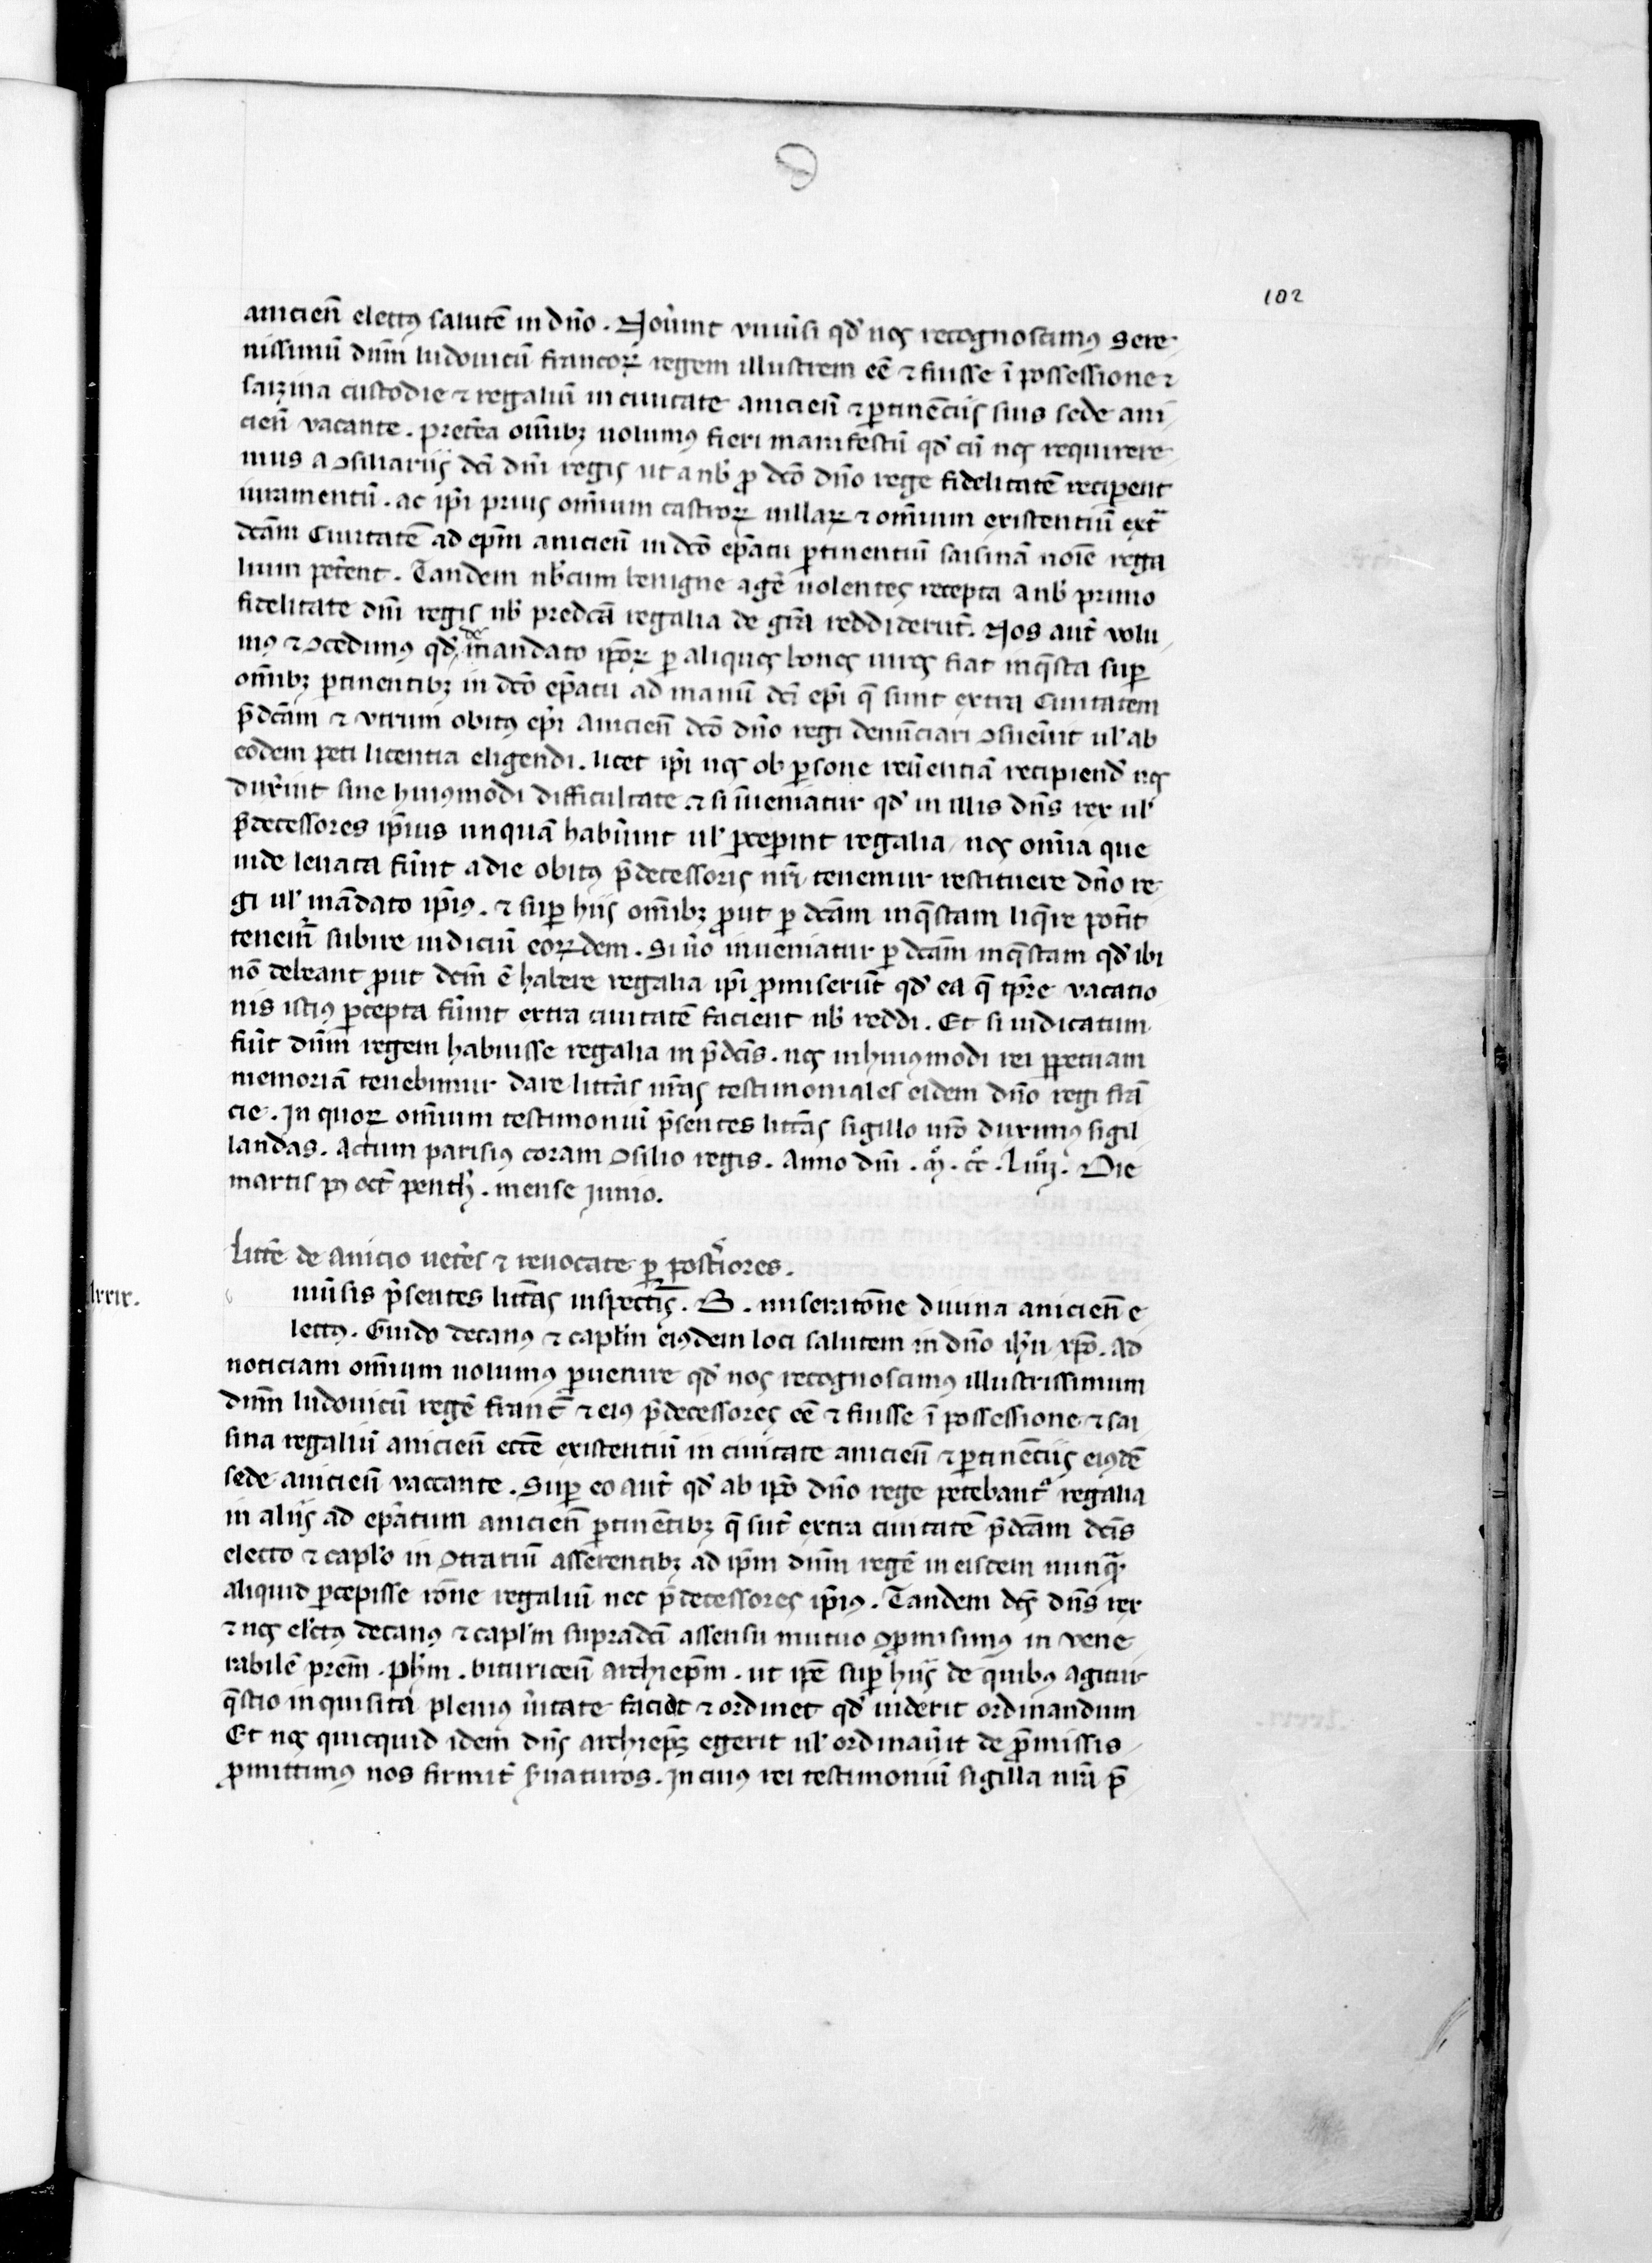 102
anicien̄ electꝰ salutē in dn̄o. Nou̓int vniu̓si qd̓ nos recognoscimꝰ Sere
nissimū dn̄m ludouicū francoꝝ regem illustrem eē ⁊ fuisse ī possessione ⁊
saizina custodie ⁊ regaliū in ciuitate anicien̄ ⁊ ꝑtinēciis suis sede ani
cien̄ vacante. pretēa om̄ibꝫ uolumꝰ fieri manifestū qd̓ cū nos requirere
mus a ꝯsiliariis dc̄i dn̄i regis ut a nob̓ ꝓ dc̄o dn̄o rege fidelitatē reciꝑent
iuramentū. ac ip̄i prius om̄ium castroꝝ uillaꝝ ⁊ om̄ium existentiū ext̄
dc̄am Ciuitatē ad ep̄m anicien̄ in dc̄o ep̄atu ꝑtinentiū saisinā noīe rega
lium pet̓ent. Tandem nob̓cum benigne agē uolentes recepta a nob̓ primo
fidelitate dn̄i regis nob̓ predc̄a regalia de gr̄a reddiderūt. Nos aut̄ volu
mꝰ ⁊ ꝯcedimꝰ qd̓ de mandato ip̄oꝝ ꝑ aliquos bonos uiros fiat inq̄sta suꝑ
om̄ibꝫ ꝑtinentibꝫ in dc̄o ep̄atu ad manū dc̄i ep̄i q̄ sunt extra Ciuitatem
p̄dc̄am ⁊ vtrum obitꝰ ep̄i Anicien̄ dc̄o dn̄o regi denūciari ꝯsueu̓it ul̓ ab
eodem peti licentia eligendi. licet ip̄i nos ob ꝑsone reu̓entiā recipiend̓ nos
dux̓int sine huiꝰmodi difficultate ⁊ si īueniatur qd̓ in illis dn̄s rex ul̓
p̄decessores ip̄ius unquā habu̓int ul̓ ꝑceꝑint regalia, nos om̄ia que
inde leuata fu̓int a die obitꝰ p̄decessoris nr̄i tenemur restituere dn̄o re
gi ul̓ mādato ip̄iꝰ. ⁊ suꝑ hiis om̄ibꝫ ꝓut ꝑ dc̄am inq̄stam liq̄re pot̓it
tenem̄ subire iudiciū eoꝝdem. Si u̓o inueniatur ꝑ dc̄am inq̄stam qd̓ ibi
nō debeant ꝓut dc̄m ē habere regalia ip̄i ꝓmiserūt qd̓ ea q̄ tp̄re vacatio
nis istiꝰ ꝑcepta fu̓int extra ciuitatē facient nob̓ reddi. Et si iudicatum
fu̓it dn̄m regem habuisse regalia in p̄dc̄is. nos in huiꝰmodi rei ꝑpetuam
memoriā tenebimur dare litt̄as nr̄as testimoniales eidem dn̄o regi frā
cie. In quoꝝ om̄ium testimoniū p̄sentes litt̄as sigillo nr̄o duximꝰ sigil
landas. Actum parisiꝰ coram ꝯsilio regis. Anno dn̄i. m̊. cc̊. liiij̊. Die
martis pꝰ oct̄ penth̓. mense Junio.
Litt̄e de Anicio uet̓es ⁊ reuocate ꝑ post̓iores.
lxxix.
niu̓sis p̄sentes litt̄as inspectis̄. B. miserat̄one diuina anicien̄ e
lectꝰ. Guido decanꝰ ⁊ capl̓m eiꝰdem loci salutem in dn̄o ih̄u xp̄o. Ad
noticiam om̄ium uolumꝰ ꝑuenire qd̓ nos recognoscimꝰ illustrissimum
dn̄m ludouicū regē franc̄ ⁊ eiꝰ p̄decessores eē ⁊ fuisse ī possessione ⁊ sai
sina regaliū anicien̄ ecc̄e existentiū in ciuitate anicien̄ ⁊ ꝑtinēciis eiꝰdē
sede anicien̄ vaccante. Suꝑ eo aut̄ qd̓ ab ip̄o dn̄o rege petebant᷑ regalia
in aliis ad ep̄atum anicien̄ ꝑtinētibꝫ q̄ sūt extra ciuitatē p̄dc̄am dc̄is
electo ⁊ capl̓o in ꝯtrariū assērentibꝫ ad ip̄m dn̄m regē in eisdem nunqᷓ
aliquid ꝑcepisse rōne regaliū nec p̄decessores ip̄iꝰ. Tandem dc̄s dn̄s rex
⁊ nos el̓ctꝰ decanꝰ ⁊ capl̓m supradc̄i assensu mutuo ꝯꝓmisimꝰ in vene
rabilē prēm. Ph̓m. bituricen̄ archiep̄m. ut ip̄e suꝑ hiis de quibꝰ agitur
q̄stio inquisita pleniꝰ u̓itate faciat ⁊ ordinet qd̓ uiderit ordinandum
Et nos quicquid idem dn̄s archiep̄s egerit ul̓ ordinau̓it de p̄missis
ꝓmittimꝰ nos firmit̄ s̓uaturos. In cuiꝰ rei testimoniū sigilla nr̄a p̄